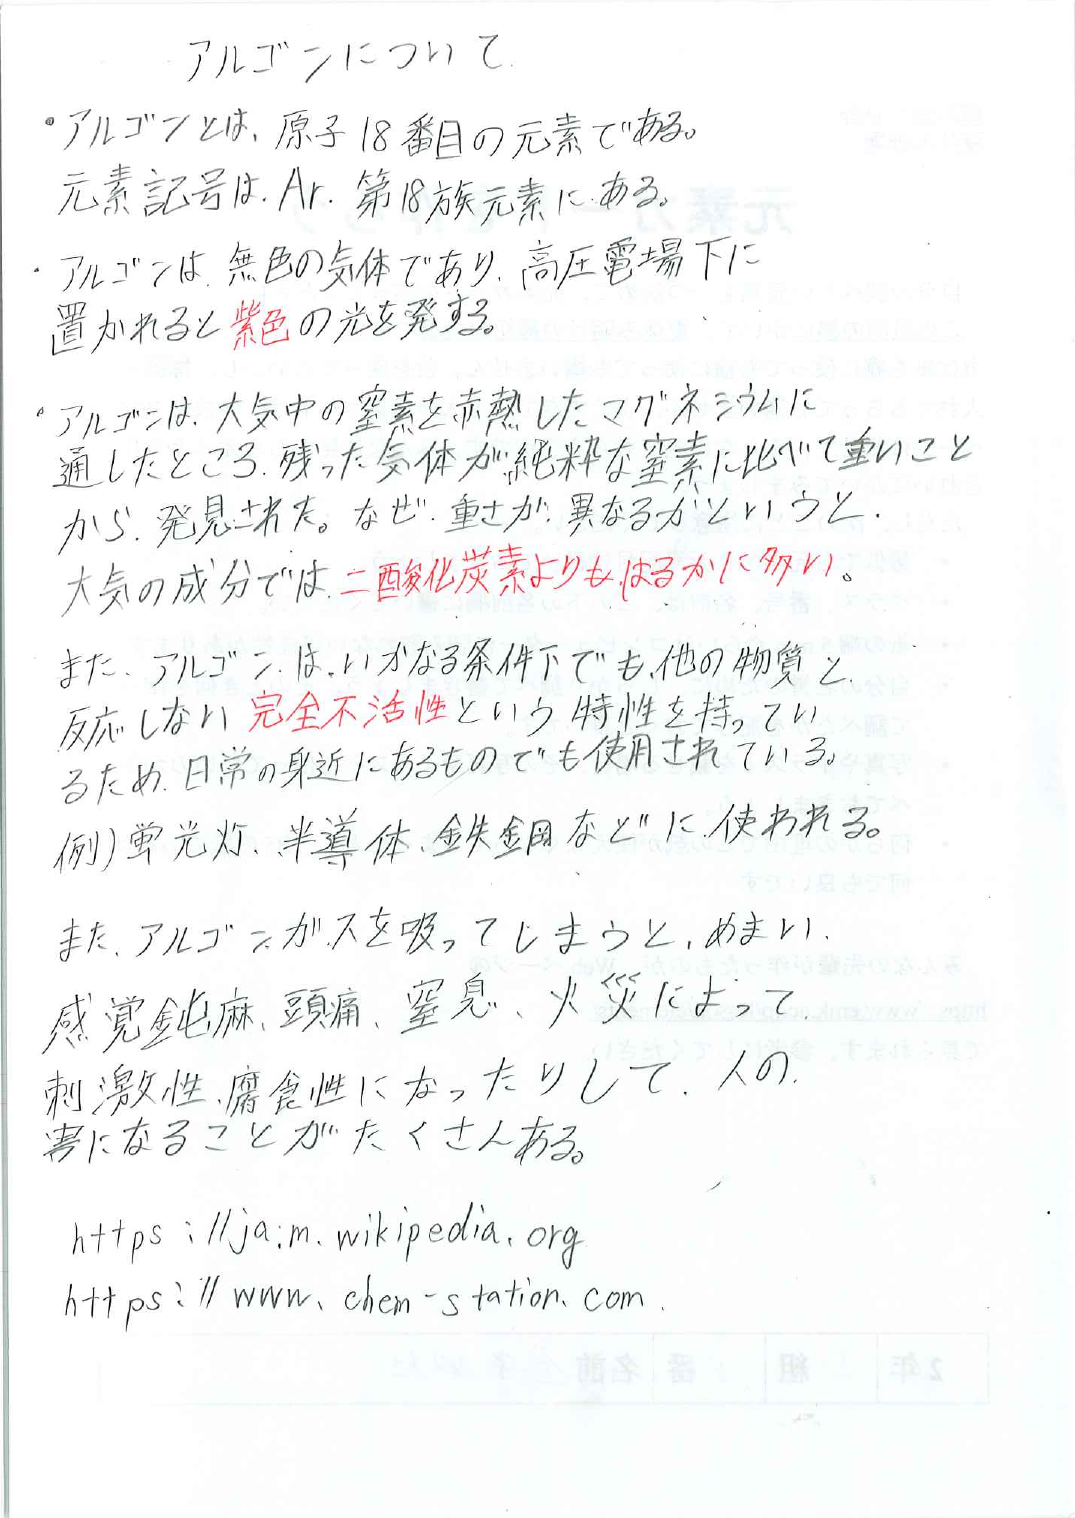 アルゴンについて.
・アルゴンとは、原子18番目の元素である。
元素記号は、Ar. 第18族元素にある。
・アルゴンは、無色の気体であり、高圧電場下に
置かれると紫色の光を発する。
・アルゴンは、大気中の窒素を赤熱したマグネシウムに
通したところ、残った気体が純粋な窒素に比べて重いこと
から、発見された。なぜ、重さが異なるかというと、
大気の成分では、二酸化炭素よりも、はるかに多い。
また、アルゴンは、いかなる条件下でも、他の物質と、
反応しない完全不活性という特性を持ってい
るため、日常の身近にあるものでも使用されている。
例)蛍光灯、半導体、鉄鋼などに使われる。
また、アルゴンガスを吸ってしまうと、めまい、
感覚鈍麻、頭痛、窒息、火災によって、
刺激性、腐食性になったりして、人の、
害になることがたくさんある。
https://ja.m.wikipedia.org
https://www.chem-station.com.
2年 組 番 名前